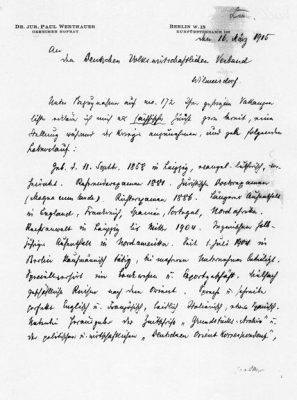 DR. JUR. PAUL WESTHAUER
GEHEIMER HOFRAT
BERLIN W. 15
KURFÜRSTENDAMM
den 16. März 1915
An
den Deutschen Volkswirtschaftlichen Verband
Wilmersdorf.
Unter Bezugnahme auf no. 172 Ihrer Vakanzen
ich mich als Jurist gern bereit, eine
Stellung während des Krieges anzunehmen, und gebe folgenden
Lebenslauf:
Geb. d. 11. Sept. 1858 in Leipzig, evangel. lutherisch, ver-
heiratet. Referendarexamen 1881. Juristisches Doctorexamen
(Magna cum laude). 1886. Längerer Aufenthalt
in England, Frankreich, Spanien, Portugal, Nordafrika.
Rechtsanwalt in Leipzig bis Mitte 1904. Inzwischen halb-
jähriger Aufenthalt in Nordamerika. Seit 1 Juli 1904 in
Berlin kaufmännisch tätig, bei mehreren Unternehmen beteiligt.
Spezialgebiet im Bankwesen u. Exportgeschäft. Vielfach
geschäftliche Reisen nach dem Orient. Sprach u. schreibe
perfekt Englisch u. Französisch, leidlich Italienisch, etwas Spanisch.
Herausgeber der Zeitschrift, "Grundstücks-Archiv" u.
der politischen u. wirtschaftlichen "Deutschen Orient Korrespondenz",